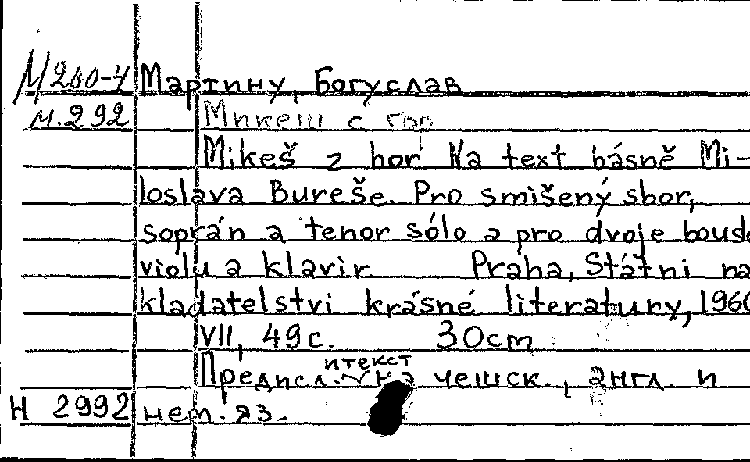 М200-4 Мартину, Богуслав
м.292 Микеш с гор
Mikeš z hor Na text básně Mi-
loslava Bureše. Pro smíšený sbor,
soprán a tenor sólo a pro dvoje
violu a klavír Praha, Státní na
kladatelství krásné literatury, 1960
VII, 49с. 30cm
Предисл. и текст на чешск., англ. и
Н 2992 нем. яз.